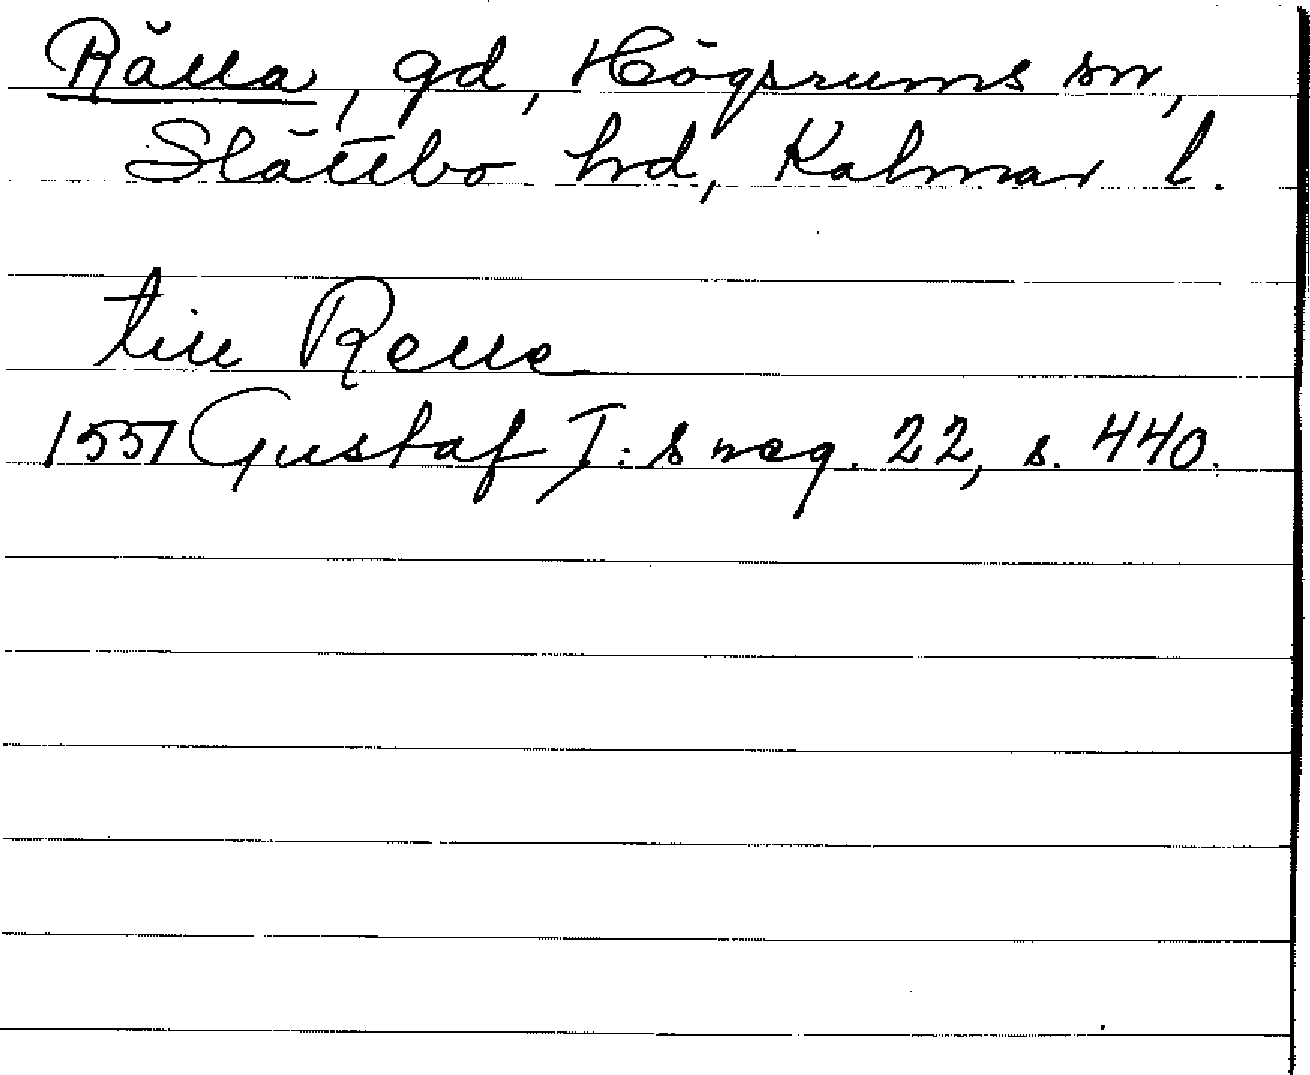 Rälla, gd, Högsrums sn,
Slättbo hd, Kalmar l.
till Relle
1551 Gustaf I:s reg. 22, s. 440.